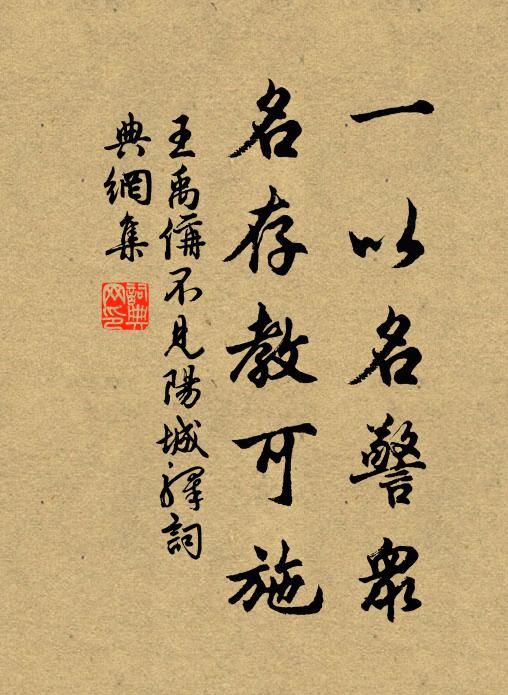 一以名警眾
名存教可施
王禹偁不見陽城驛詞
典網集
詞典
网印